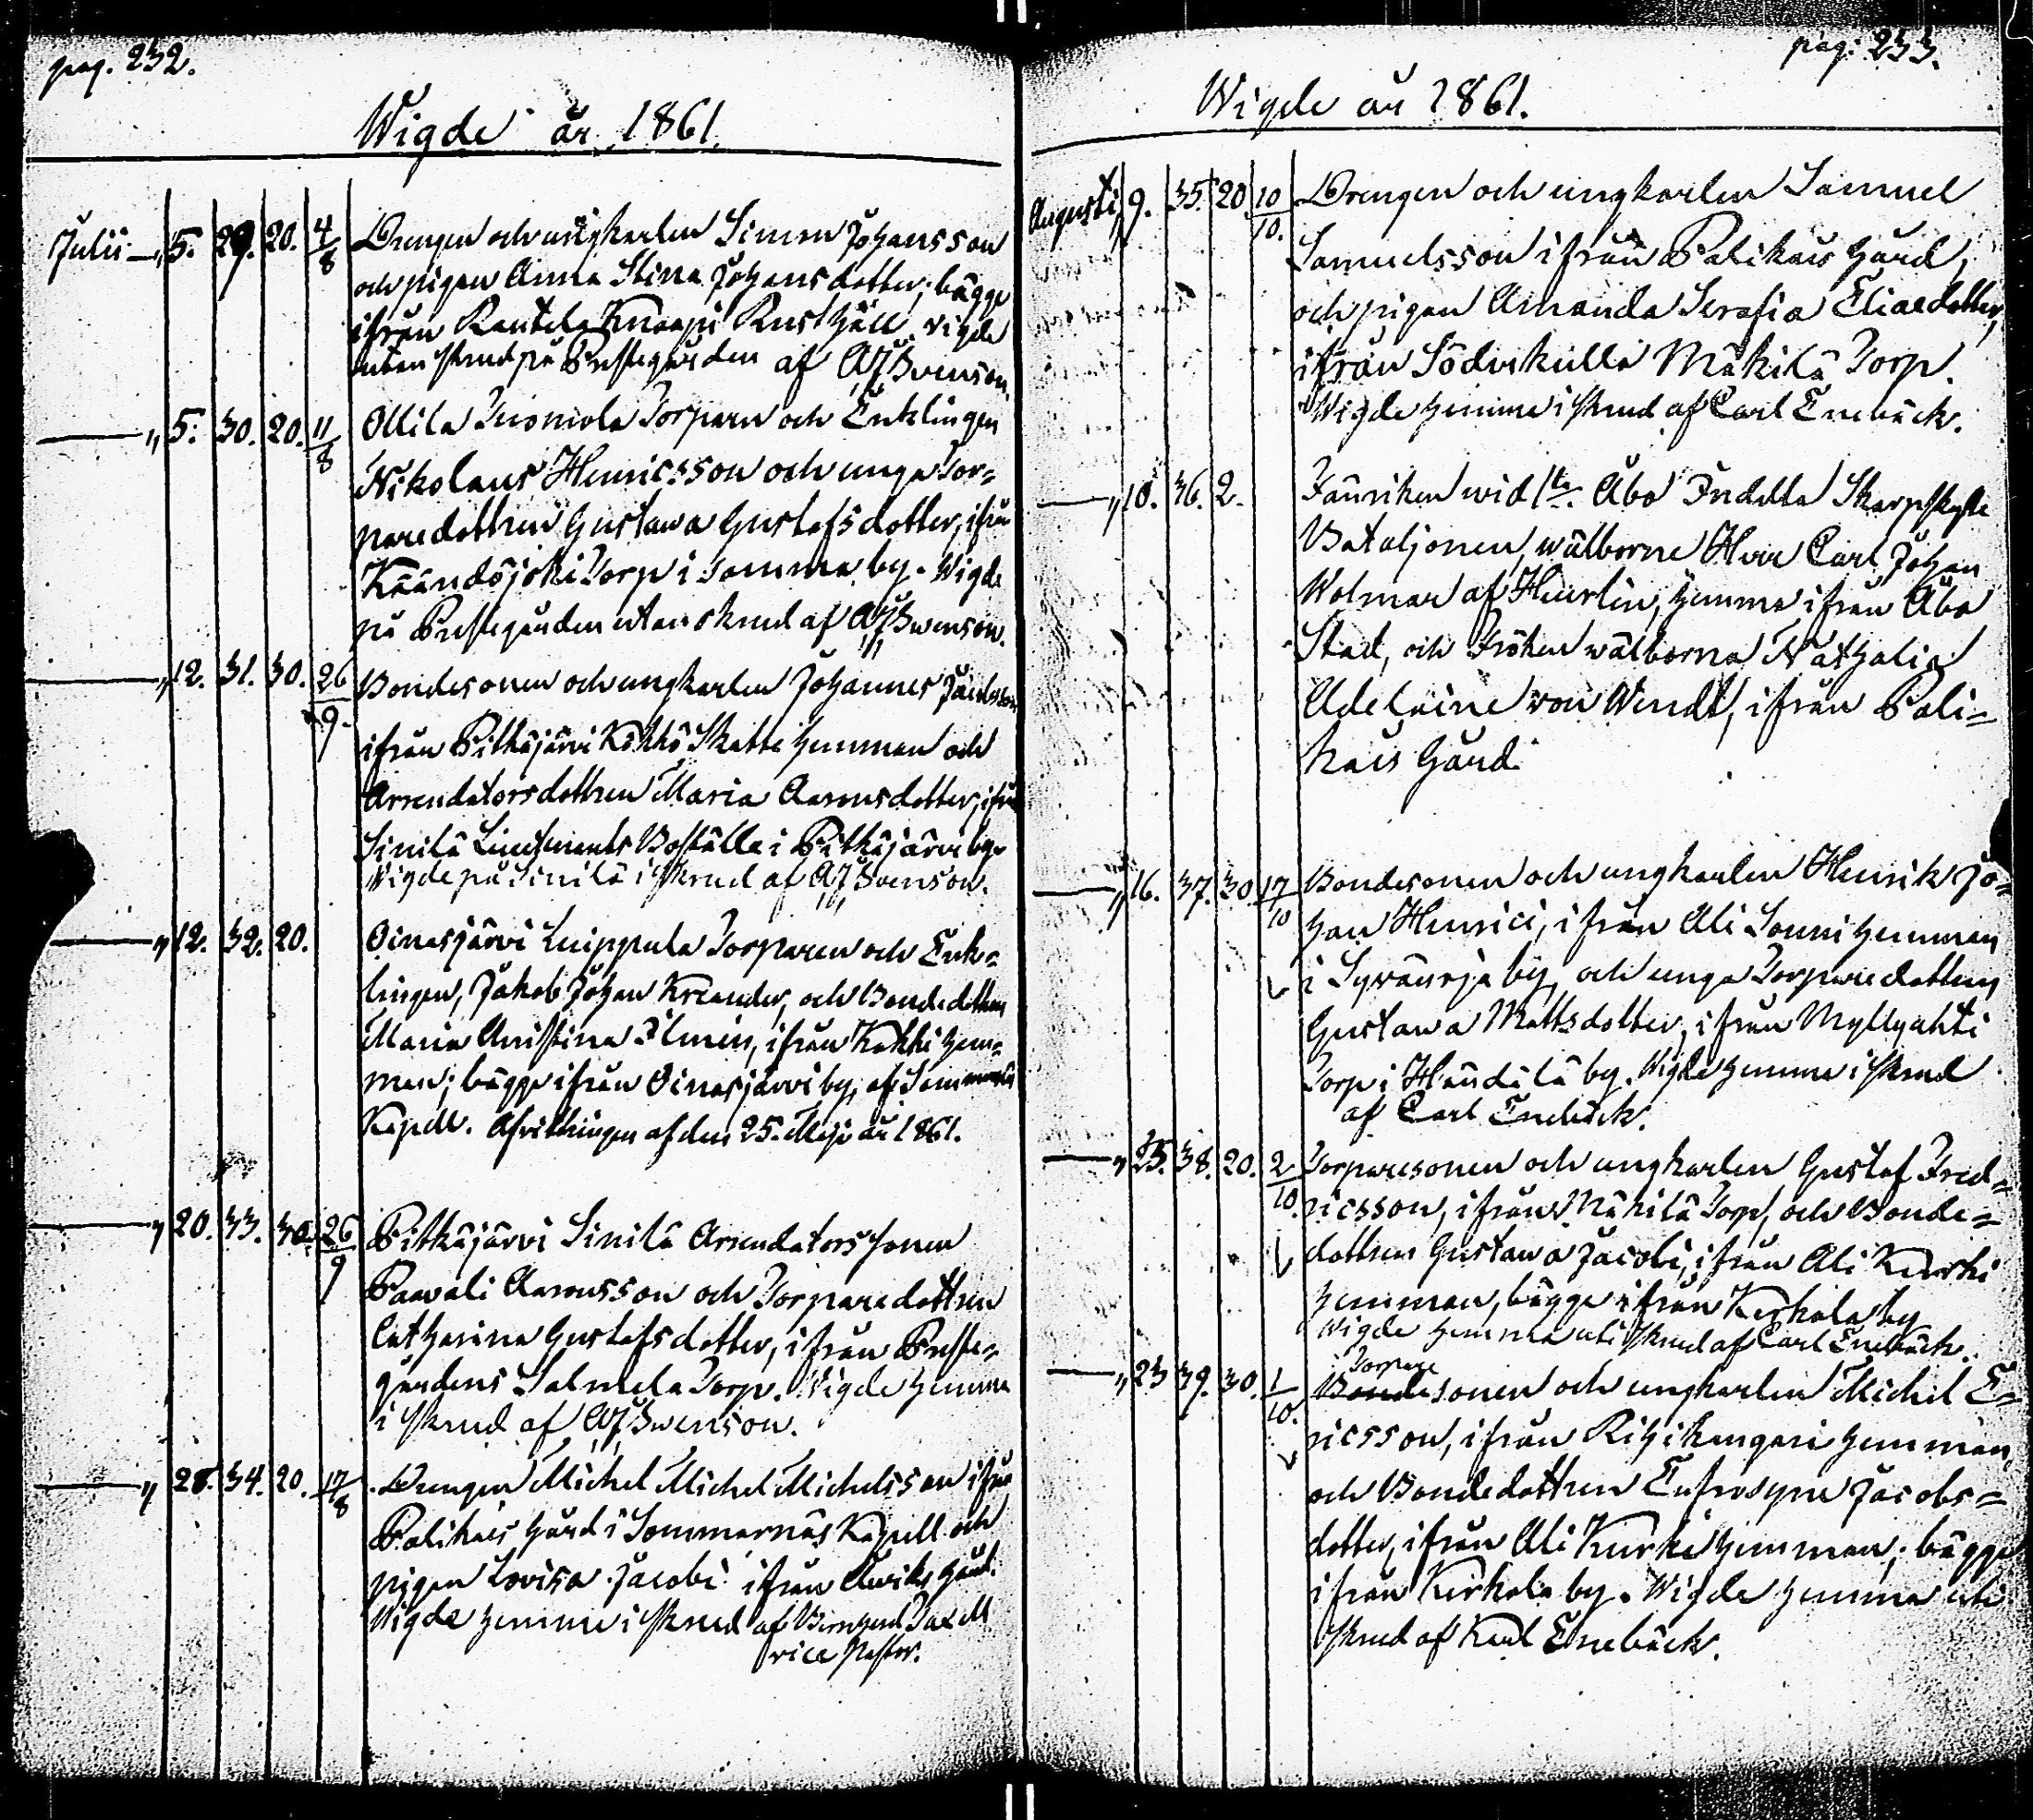 pag. 232.
Wigde år 1861.
Julii — „ 5. 29. 20. 4/8 Drengen och ungkarlen Simon Johansson
och pigan Anna Stina Johansdotter, bägge
ifrån Rautela Knaapi Rusthåll. Vigde
utan skrud på Prestegården af A J Svenson.
— „ 5. 30. 20. 11/8 Ollila Torparen och Enklingen
Nikolaus Henricsson och unga Tor-
paredottren Gustawa Gustafsdotter, ifrån
Käändöjoki Torp i samma by. Wigde
på Prestegården utan skrud af A J Swenson.
— „ 12. 31. 30. 26/9. Bondesonen och ungkarlen Johannes Jacobsson
ifrån Pitkäjärvi Köhkö Skatte hemman och
Arrendatorsdottren Maria Aaronsdotter, ifrån
Sinilä Lieutenants Boställe i Pitkäjärvi by.
Vigde på Sinilä i skrud af A J Svenson.
— „ 12. 32. 20. Oinasjärvi Torparen och Enk-
lingen, Jakob Johan Kreander, och Bondedottren
Maria Christina Ilmén, ifrån Kokki Hem-
man; bägge ifrån Oinasjärvi by, af Sommernäs
Kapell. Afvittringen af den 25. Maji år 1861.
— „ 20. 33. 30. 26/9 Pitkäjärvi Sinilä Arrendators sonen
Paavali Aaronsson och Torparedottren
Catharina Gustafsdotter, ifrån Preste-
gårdens Salmela Torp. Vigde hemma
i skrud af A J Swenson.
— „ 28. 34. 20. 17/8 Drengen Michel Michel Michelsson ifrån
Palikais Gård i Sommernäs Kapell och
pigan Lovisa Jacobi ifrån Åviks Gård.
Wigde hemma i skrud af Bernhard
vice Pastor.
pag: 233.
Wigde år 1861.
Augusti „ 9. 35. 20. 10/10. Drengen och ungkarlen Samuel
Samuelsson ifrån Palikais Gård,
och pigan Amanda Serafia Eliaedotter,
ifrån Söderkulla Mäkilä Torp.
Wigde hemma i skrud af Carl Enebäck.
— „ 10. 36. 2. Fänriken wid 1sta Åbo Indelta Skarpskytte
Bataljonen, wälborne Herr Carl Johan
Wolmar af Heurlin, hemma ifrån Åbo
Stad, och Fröken wälborna Nathalia
Adelaine von Wendt, ifrån Pali-
kais Gård
— „ 16. 37. 30. 17/10 Bondesonen och ungkarlen Henrik Jo-
han Henrici, ifrån Ali Sonni hemman,
i Syvänoja by, och unga Torparedottren
Gustawa Mattsdotter, ifrån Myllyahti
Torp i Händälä by. Wigde hemma i skrud
af Carl Enebäck.
— „ 23. 38. 20. 2/10. Torparesonen och ungkarlen Gustaf Fred-
ricsson, ifrån Mäkilä Torp, och Bonde-
dottren Gustawa Jacobi, ifrån Ali Kurki
hemman, bägge ifrån Kerkola by
Wigde hemma uti skrud af Carl Enebäck.
Torpare
— „ 23 39. 30. 1/10. Bondesonen och ungkarlen Michel E-
ricsson, ifrån Rihikangari hemman,
och Bondedottren Eufrosyne Jacobs-
dotter, ifrån Ali Kurki hemman; bägge
ifrån Kerkola by. Wigde hemma uti
skrud af Karl Enebäck.